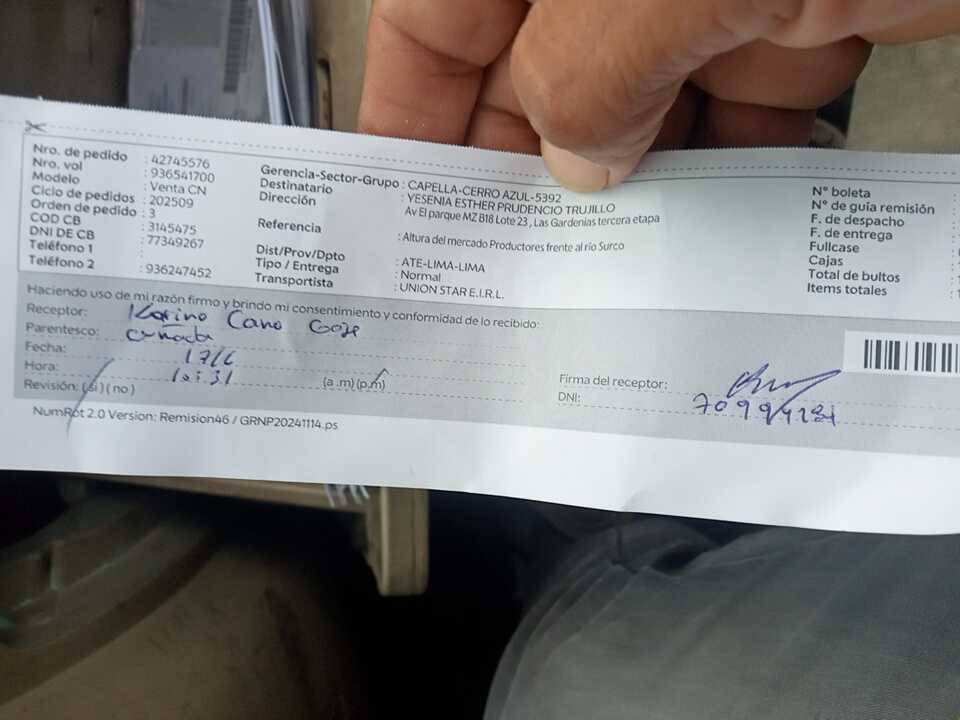 Nro. de pedido : 42745576
Nro. vol : 936541700
Modelo : Venta CN
Ciclo de pedidos : 202509
Orden de pedido : 3
COD CB : 3145475
DNI DE CB : 77349267
Teléfono 1 :
Teléfono 2 : 936247452
Gerencia-Sector-Grupo : CAPELLA-CERRO AZUL-5392
Destinatario : YESENIA ESTHER PRUDENCIO TRUJILLO
Dirección Av El parque MZ B18 Lote 23 , Las Gardenias tercera etapa
Referencia : Altura del mercado Productores frente al río Surco
Dist/Prov/Dpto : ATE-LIMA-LIMA
Tipo / Entrega : Normal
Transportista : UNION STAR E.I.R.L.
N° boleta
N° de guía remisión
F. de despacho
F. de entrega
Fullcase
Cajas
Total de bultos
Items totales
Haciendo uso de mi razón firmo y brindo mi consentimiento y conformidad de lo recibido:
Receptor: Karina Cano
Parentesco: cuñada
Fecha: 17/6
Hora: (a .m) (p.m)
Revisión: (si) ( no )
Firma del receptor:
DNI:
NumRot 2.0 Version: Remision46 / GRNP20241114.ps